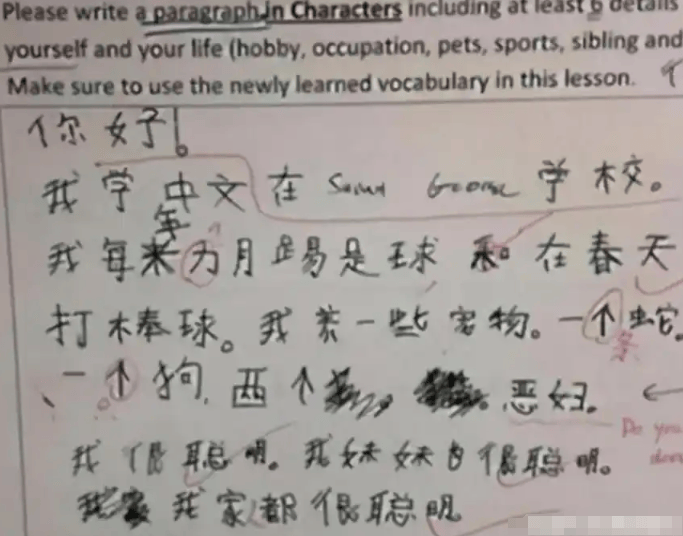 Please write a paragraph in Characters including at least 6 details
yourself and your life (hobby, occupation, pets, sports, sibling and
Make sure to use the newly learned vocabulary in this lesson.
你好!。
我学中文在 学校。
年
我每来为月踢是球和在春天
打棒球。我养一些宠物。一个蛇。
条
一个狗,两个 恶妇。
Do you
我很聪明。我妹妹也很聪明。
我家都很聪明